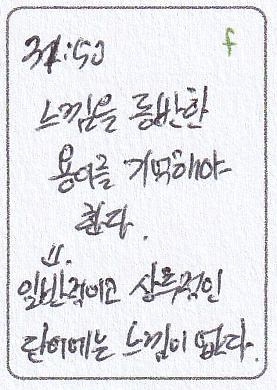 31:50 f
느낌을 동반한
용어를 기억해야
한다.
일반적이고 상투적인
단어에는 느낌이 없다.